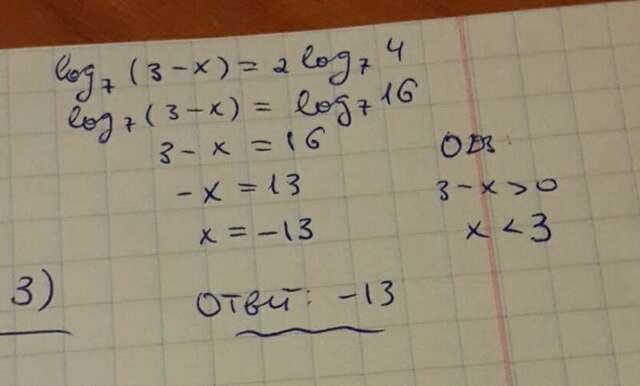 log₇(3-x) = 2 log₇ 4
log₇(3-x) = log₇ 16
3-x = 16
-x = 13
x = -13
ОДЗ:
3-x>0
x<3
3)
Ответ: -13